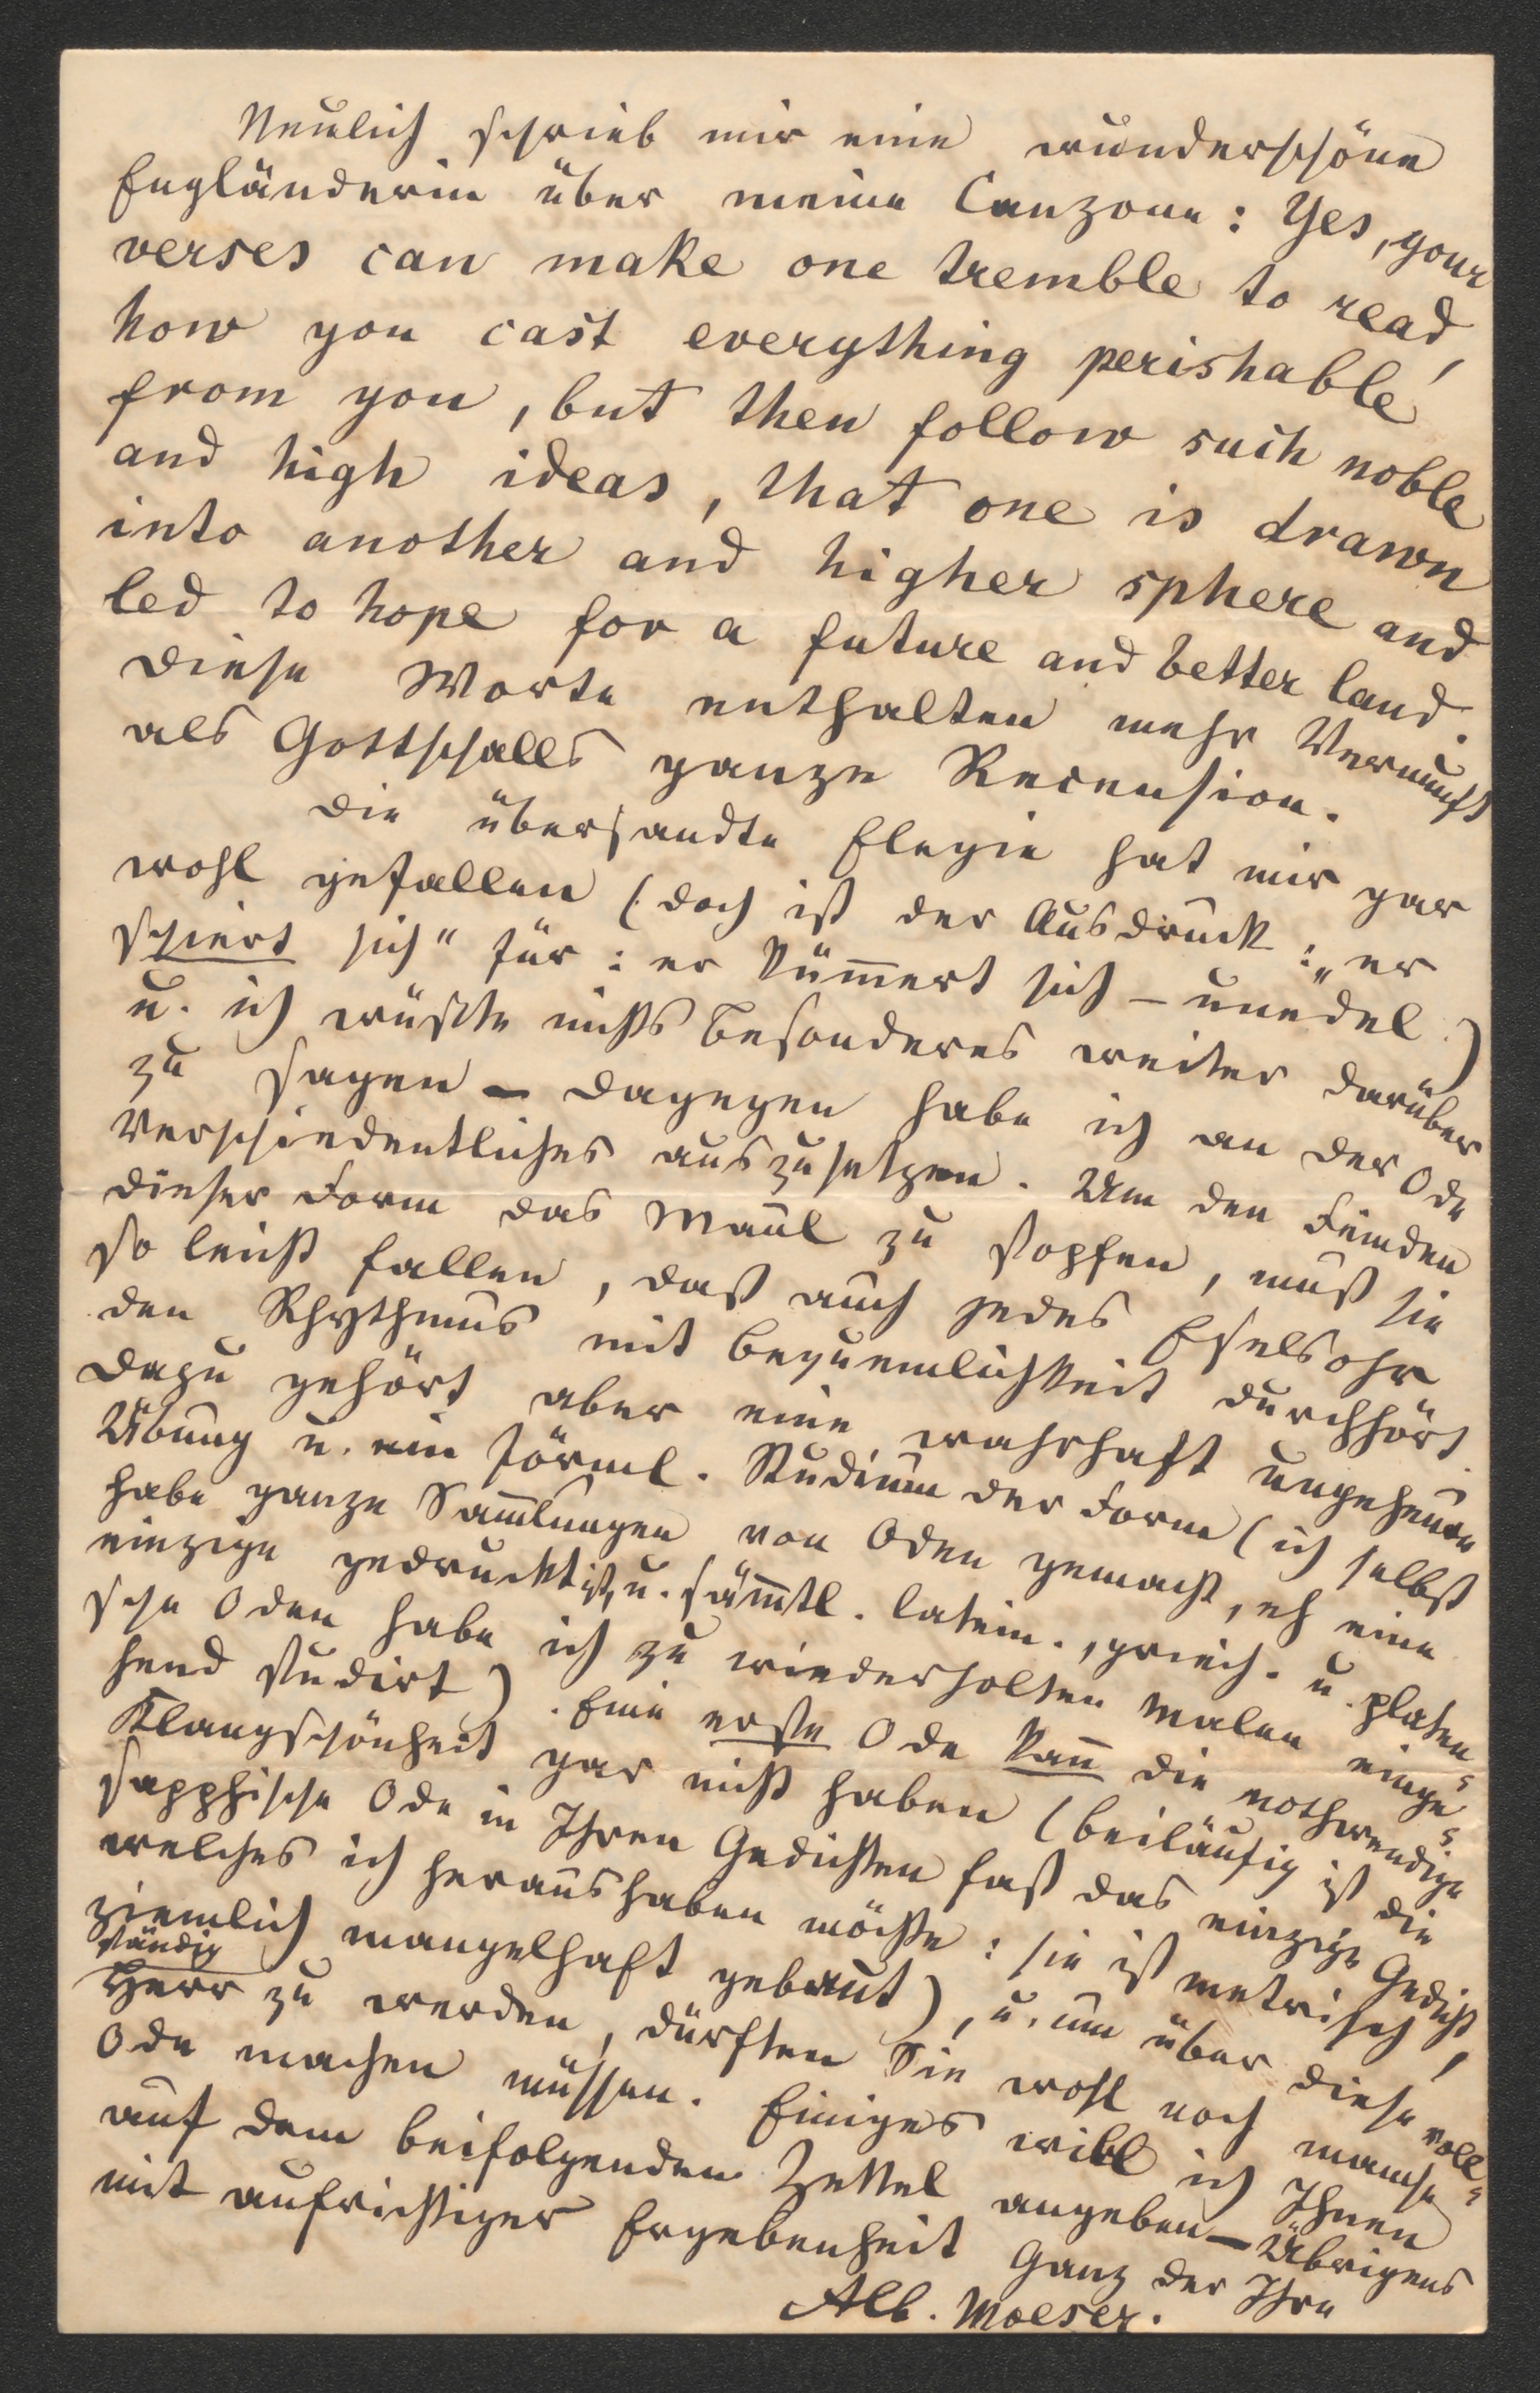 Neulich schrieb mir eine wunderschöne
Engländerin über meine Canzone: Yes, your
verses can make one tremble to read,
how you cast everything perishable
from you, but then follow such noble
and high ideas, that one is drawn
into another and higher sphere and
led to hope for a future and better land.
Diese Worte enthalten mehr Vernunft
als Gottschalls ganze Recension.
Die übersandte Elegie hat mir gar
wohl gefallen (doch ist der Ausdruck: „er
schiert sich" für: er kümmert sich – unedel.)
u. ich wüßte nichts Besonderes weiter darüber
zu sagen – dagegen habe ich an der Ode
Verschiedentliches auszusetzen. Um den Feinden
dieser Form das Maul zu stopfen, muß sie
so leicht fallen, daß auch jedes Eselsohr
den Rhythmus mit Bequemlichkeit durchhört.
Dazu gehört aber eine wahrhaft ungeheure
Übung u. ein förml. Studium der Form (ich selbst
habe ganze Sammlungen von Oden gemacht, eh eine
einzige gedruckt ist, u. sämmtl. latein., griech. u. platen-
sche Oden habe ich zu wiederholten Malen einge-
hend studirt). Eine erste Ode kann die nothwendige
Klangschönheit gar nicht haben (beiläufig ist die
sapphische Ode in Ihren Gedichten fast das einzige Gedicht,
welches ich heraushaben möchte: sie ist metrisch
ziemlich mangelhaft gebaut), u. um über diese voll-
ständig
Herr zu werden, dürften Sie wohl noch manche
Ode machen müssen. Einiges will ich Ihnen
auf dem beifolgenden Zettel angeben – Übrigens
mit aufrichtiger Ergebenheit Ganz der Ihre
Alb. Moeser.